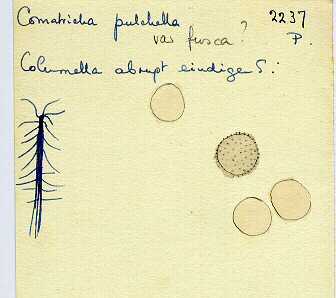 Comatricha pulchella 2237
var fusca? P.
Columella abrupt eindigend.